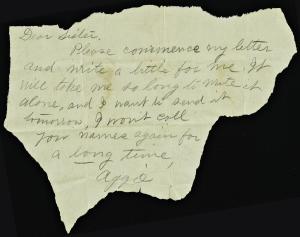 Dear Sister,
Please commence my letter
and write a little for me It
will take me so long to write it
alone, and I want to send it
tomorrow, I wont call
you names again for
a long time,
Aggie